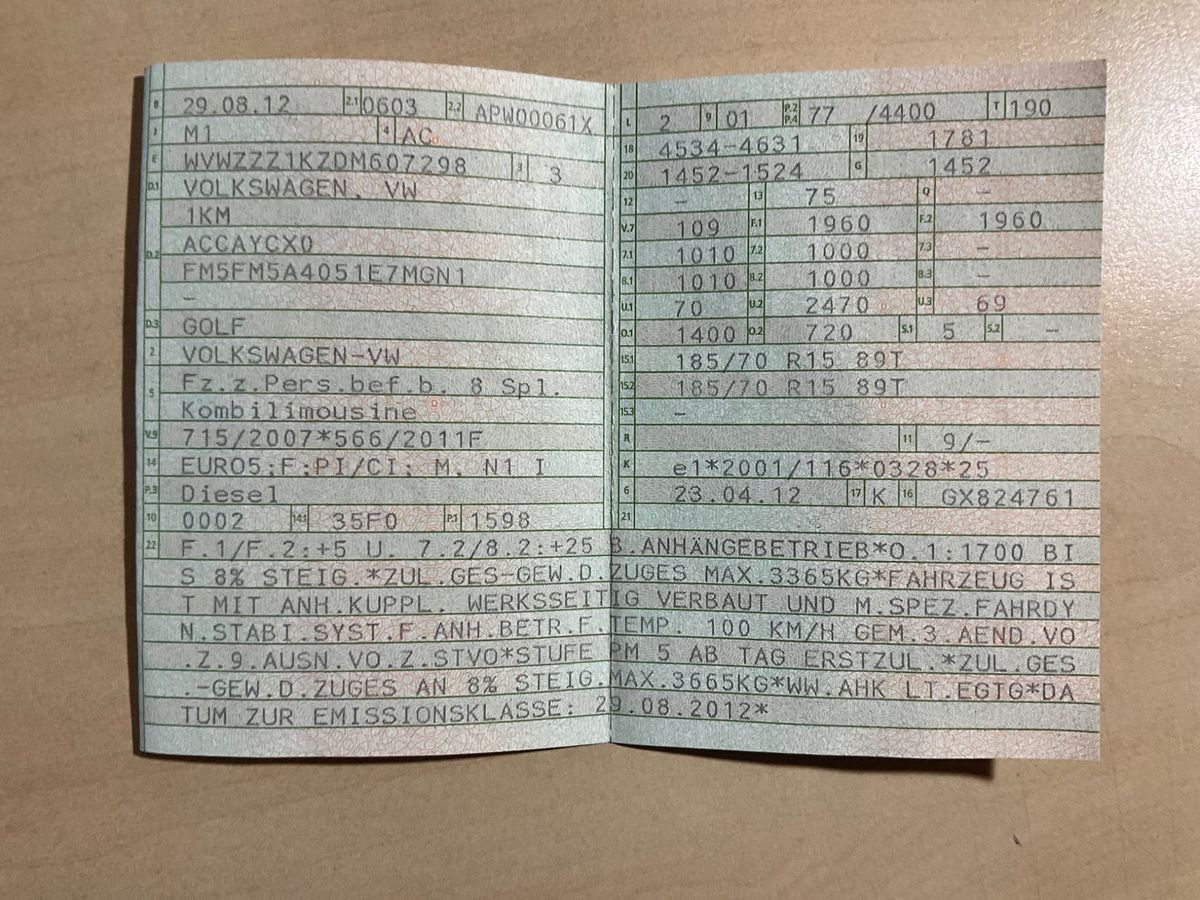 B 29.08.12 2.1 0603 2.2 APW00061X
J M1 4 AC
E WVWZZZ1KZDM607298 3 3
D.1 VOLKSWAGEN, VW
1KM
D.2 ACCAYCX0
FM5FM5A4051E7MGN1
–
D.3 GOLF
2 VOLKSWAGEN-VW
5 Fz.z.Pers.bef.b. 8 Spl.
Kombilimousine
V.9 715/2007*566/2011F
14 EURO5;F;PI/CI; M, N1 I
P.3 Diesel
10 0002 14.1 35F0 P.1 1598
L 2 9 01 P.2 P.4 77 /4400 T 190
18 4534-4631 19 1781
20 1452-1524 G 1452
12 – 13 75 Q –
V.7 109 F.1 1960 F.2 1960
7.1 1010 7.2 1000 7.3 –
8.1 1010 8.2 1000 8.3 –
U.1 70 U.2 2470 U.3 69
O.1 1400 O.2 720 S.1 5 S.2 –
15.1 185/70 R15 89T
15.2 185/70 R15 89T
15.3 –
R 11 9/-
K e1*2001/116*0328*25
6 23.04.12 17 K 16 GX824761
21
22 F.1/F.2:+5 U. 7.2/8.2:+25 B.ANHÄNGEBETRIEB*O.1:1700 BI
S 8% STEIG.*ZUL.GES-GEW.D.ZUGES MAX.3365KG*FAHRZEUG IS
T MIT ANH.KUPPL. WERKSSEITIG VERBAUT UND M.SPEZ.FAHRDY
N.STABI.SYST.F.ANH.BETR.F.TEMP. 100 KM/H GEM.3.AEND.VO
.Z.9.AUSN.VO.Z.STVO*STUFE PM 5 AB TAG ERSTZUL.*ZUL.GES
.-GEW.D.ZUGES AN 8% STEIG.MAX.3665KG*WW.AHK LT.EGTG*DA
TUM ZUR EMISSIONSKLASSE: 29.08.2012*